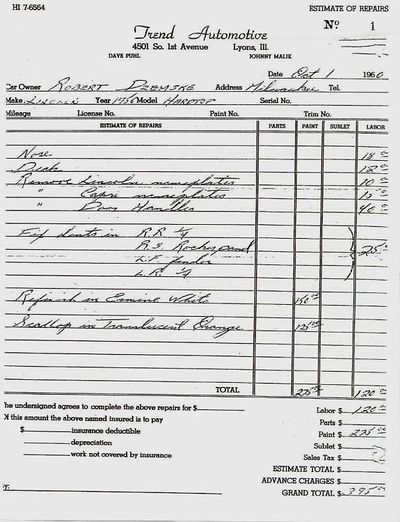 HI 7-6564
ESTIMATE OF REPAIRS
Nº 1
Trend Automotive
4501 So. 1st Avenue Lyons, Ill.
DAVE PUHL JOHNNY MALIK
Date Oct 1 1960
Car Owner ROBERT DZEMSKE Address Milwaukee Tel.
Make LINCOLN Year 1956 Model HARDTOP Serial No.
Mileage License No. Paint No. Trim No.
ESTIMATE OF REPAIRS PARTS PAINT SUBLET LABOR
Nose 18
Deck 12
Remove Lincoln nameplates 10
" Capri nameplates 15
" Door Handles 40
Fix dents in R.R. 1/4
R.S. Rocker panel 25
L.F. fender
L.R. 1/4
Refinish in Ermine White 150
Scallop in Translucent Orange 125
TOTAL 275 120
The undersigned agrees to complete the above repairs for $
Of this amount the above named insured is to pay
$ insurance deductible
depreciation
work not covered by insurance
Labor $ 120
Parts $
Paint $ 275
Sublet $
Sales Tax $
ESTIMATE TOTAL $
ADVANCE CHARGES $
GRAND TOTAL $ 395